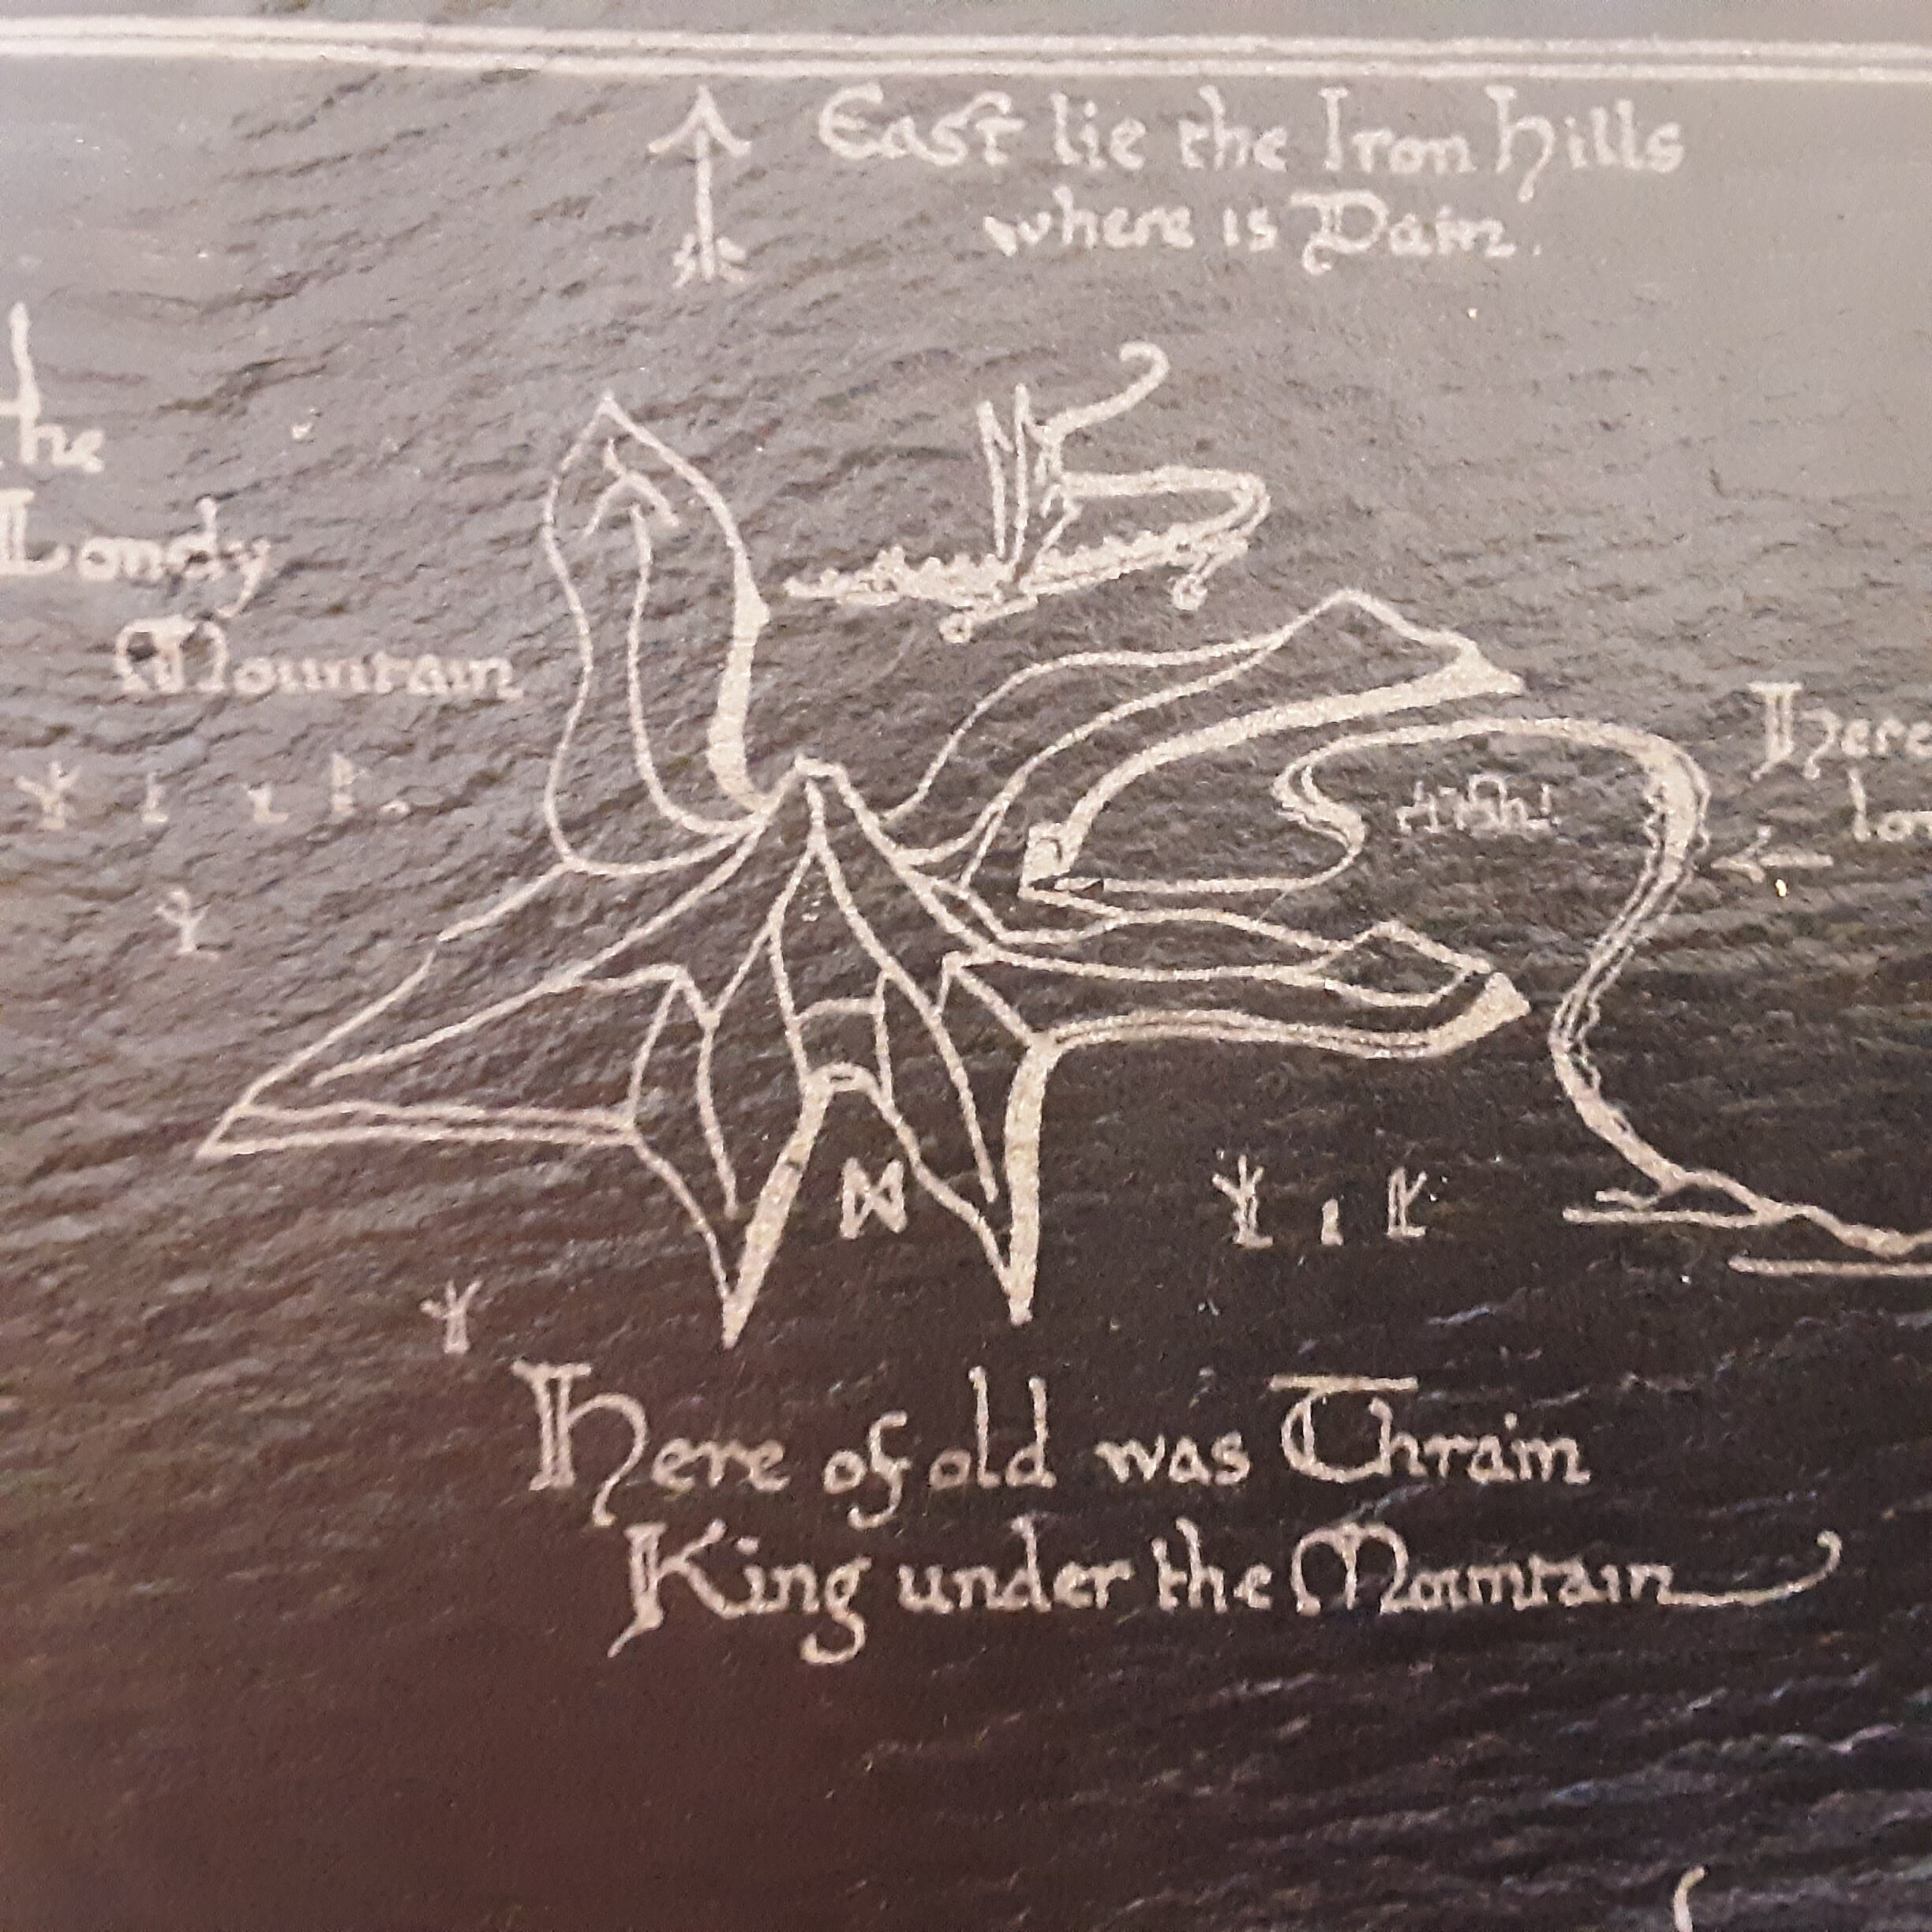 East lie the Iron Hills
where is Dain.
The
Lonely
Mountain
Here
ᛞ
Here of old was Thrain
King under the Mountain